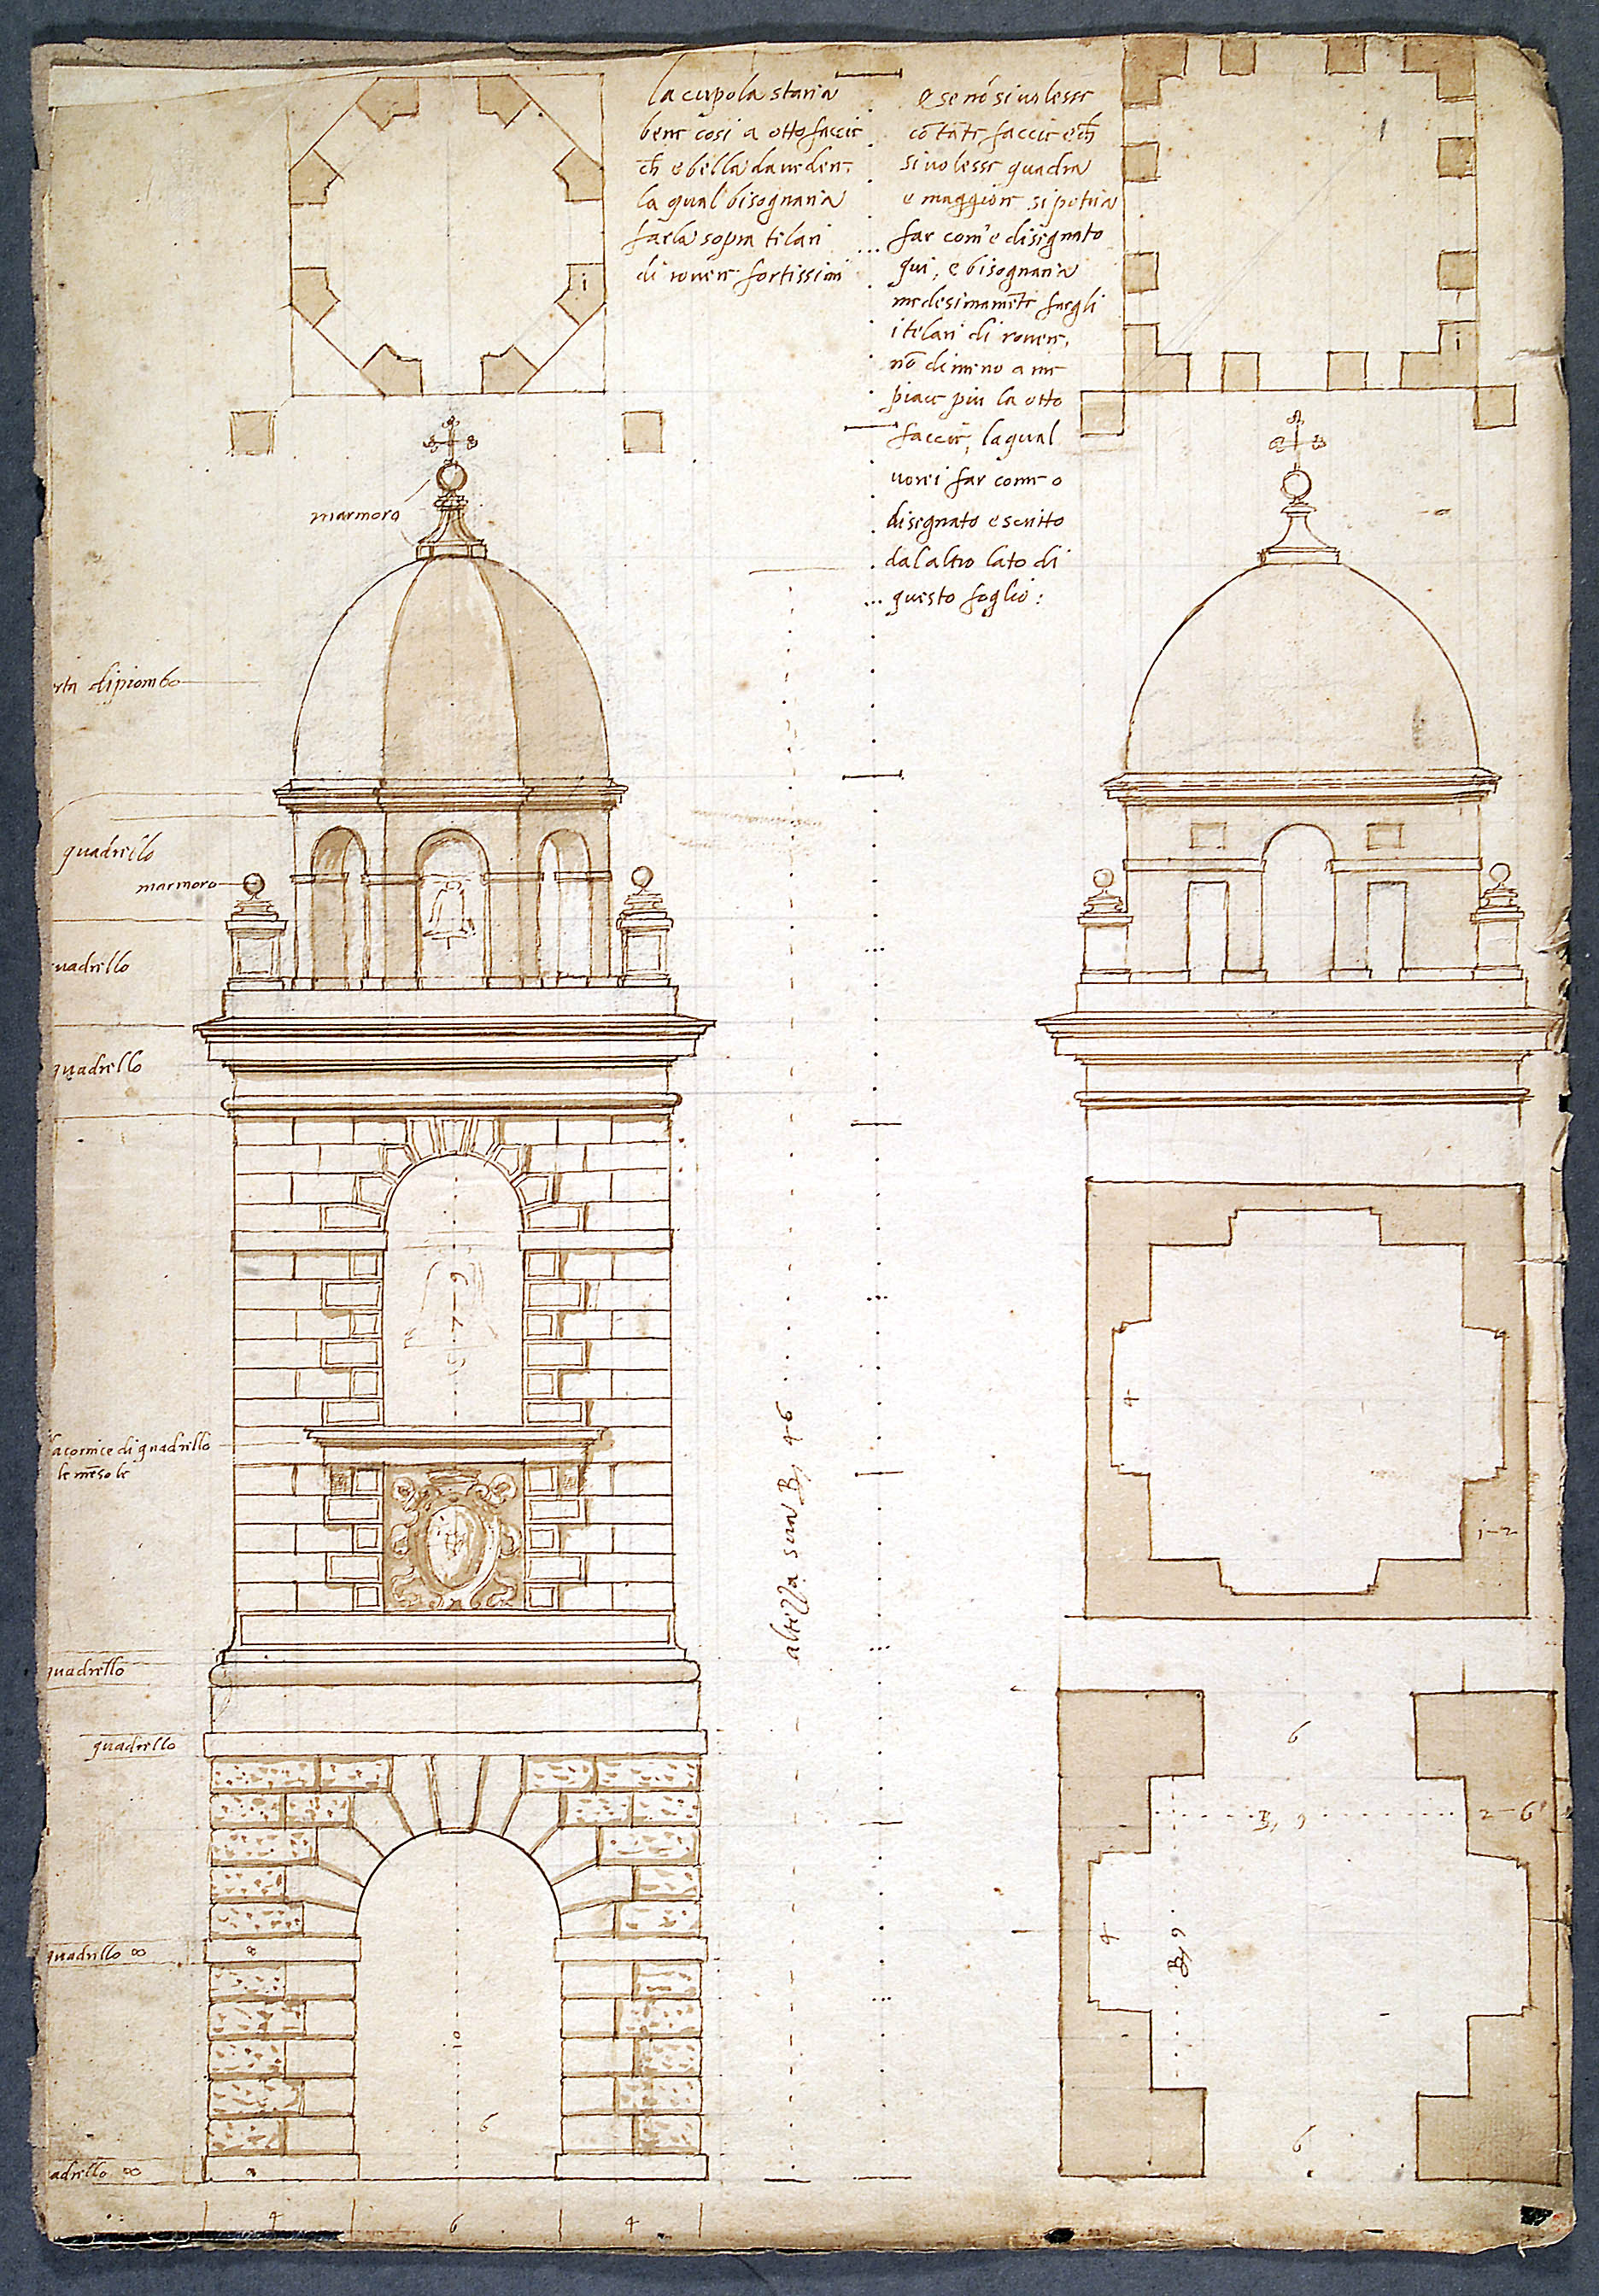 la cupola staria
bene cosi a otto faccie
ch̄ e bella da vedere
la qual bisognaria
farla sopra telari
di rovere fortissimi
e se nō si volesse
cō tāte faccie e ch̄
si volesse quadra
e maggiore si potria
far com'e disegnato
qui, e bisognaria
medesimamēte fargli
i telari di rovere,
nō dimeno a me
piace piu la otto
faccie, la qual
vorei far come o
disegnato e scritto
dal altro lato di
questo foglio:
i
i
marmoro
di piombo
quadrello
marmoro
quadrello
quadrello
la cornice di quadrello
le mēsole
quadrello
quadrello
quadrello 8
8
8
altezza sera B, 46
4
i–2
6
B, 9
2–6
4
B, 9
6
10
6
4
6
4